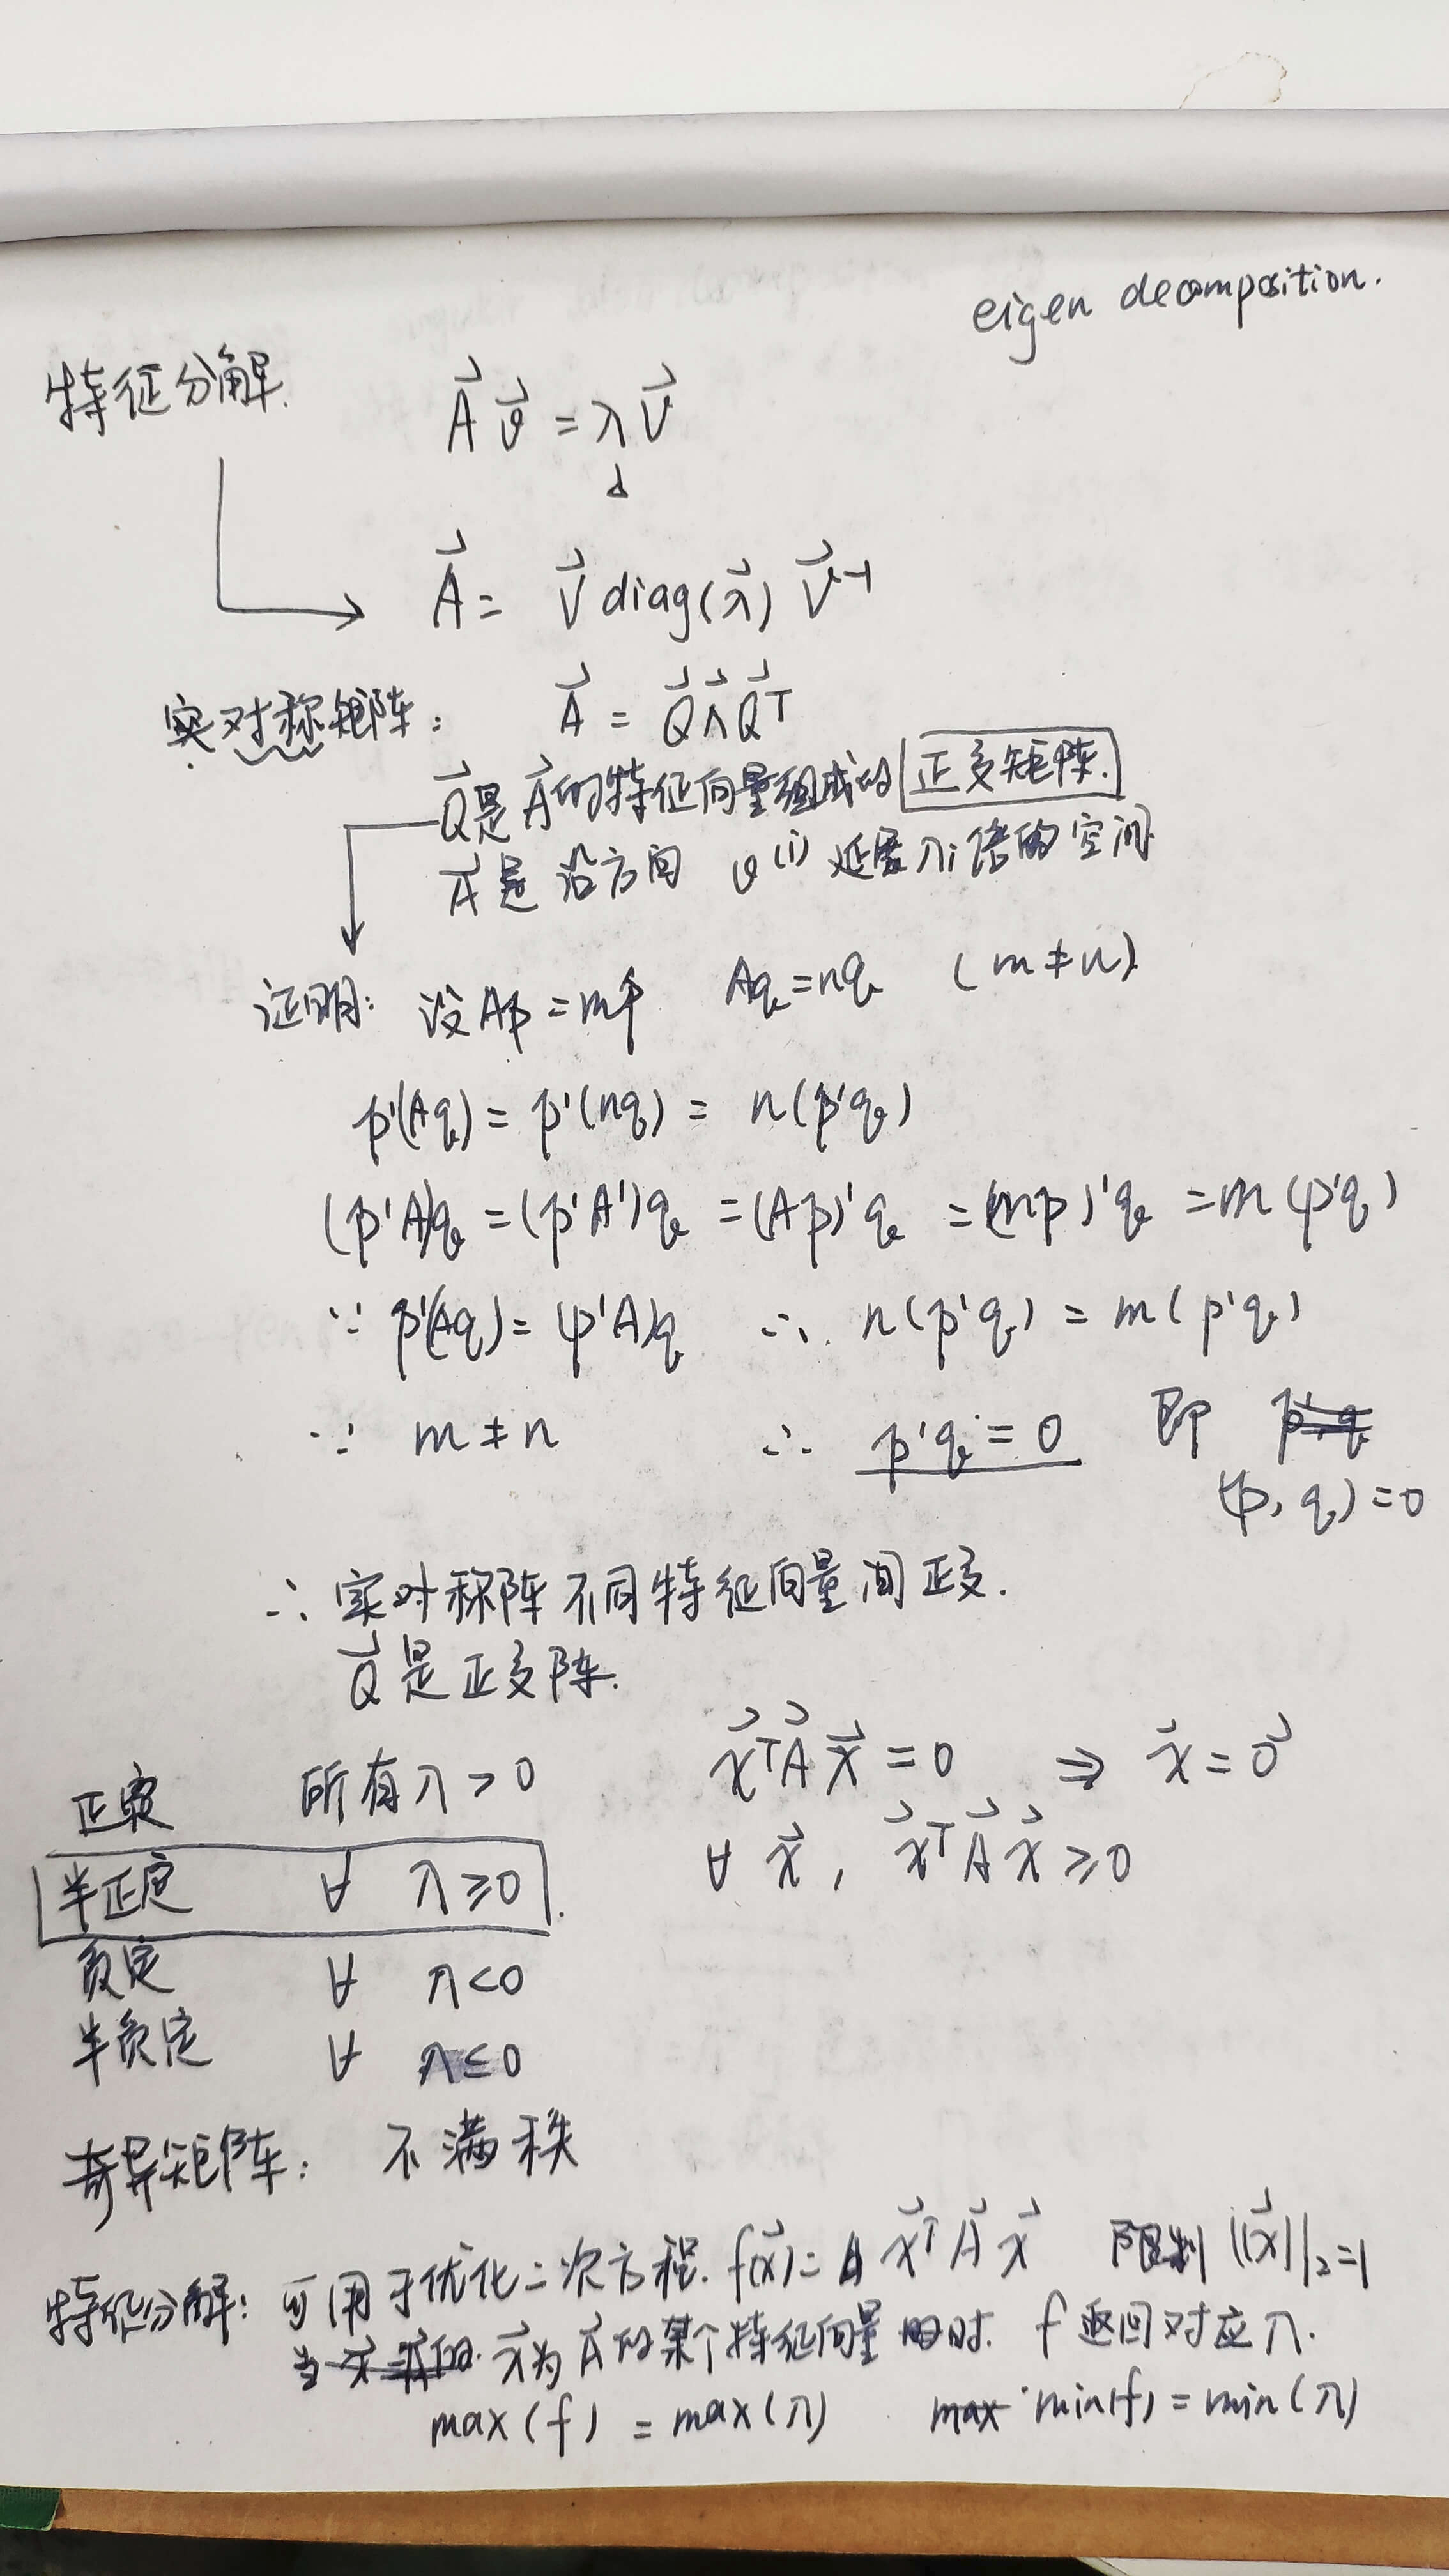 eigen decomposition.
特征分解.
A⃗ v⃗ = λ v⃗
A⃗ = V⃗ diag(λ⃗) V⃗⁻¹
实对称矩阵: A⃗ = Q⃗ Λ⃗ Q⃗ᵀ
Q⃗是A⃗的特征向量组成的 正交矩阵.
A⃗是 沿方向 v⁽ⁱ⁾ 延展λi倍的空间
证明: 设Ap=mp Aq=nq (m≠n)
p'(Aq) = p'(nq) = n(p'q)
(p'A)q = (p'A')q = (Ap)'q = (mp)'q = m(p'q)
∵ p'(Aq) = (p'A)q ∴ n(p'q) = m(p'q)
∵ m≠n ∴ p'q = 0 即
(p, q) = 0
∴ 实对称阵不同特征向量间正交.
Q⃗是正交阵.
正定 所有λ>0 x⃗ᵀA⃗x⃗ = 0 ⇒ x⃗ = 0⃗
半正定 ∀ λ≥0 ∀ x⃗, x⃗ᵀA⃗x⃗ ≥0
负定 ∀ λ<0
半负定 ∀ λ≤0
奇异矩阵: 不满秩
特征分解: 可用于优化二次方程. f(x⃗) = x⃗ᵀA⃗x⃗ 限制 ||x⃗||₂=1
当 x⃗为A⃗的某个特征向量时. f 返回对应λ.
max(f) = max(λ) min(f) = min(λ)